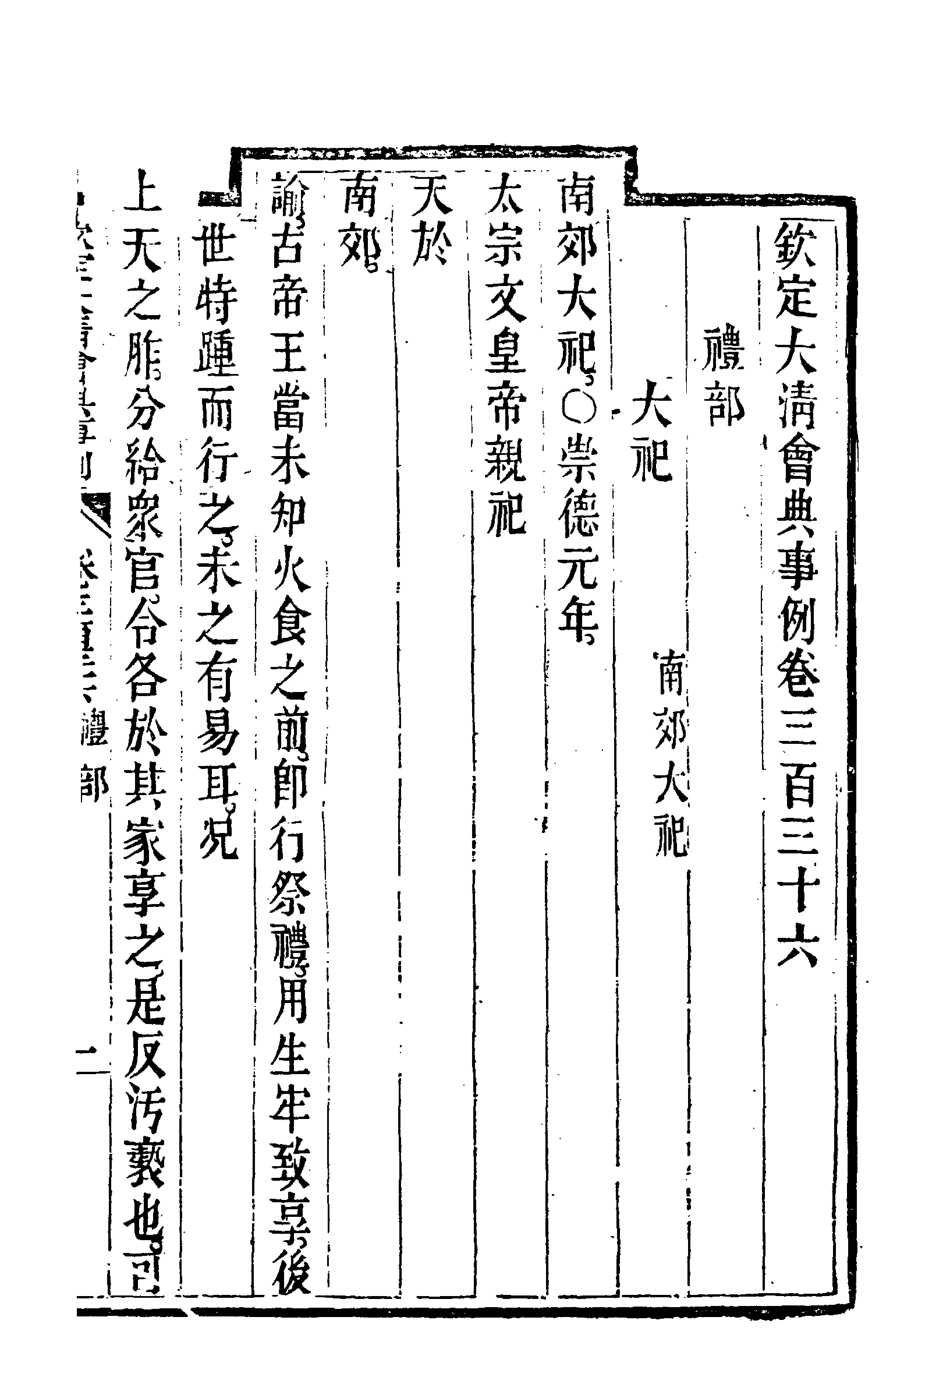 欽定大清會典事例卷三百三十六
禮部
大祀
南郊大祀
南郊大祀、〇崇德元年、
太宗文皇帝親祀
天於
南郊。
諭、古帝王當未知火食之前。卽行祭禮、用生牢致享、後
世特踵而行之、未之有易耳。况
上天之胙、分給衆官、令各於其家享之、是反汚褻也。可
禮部